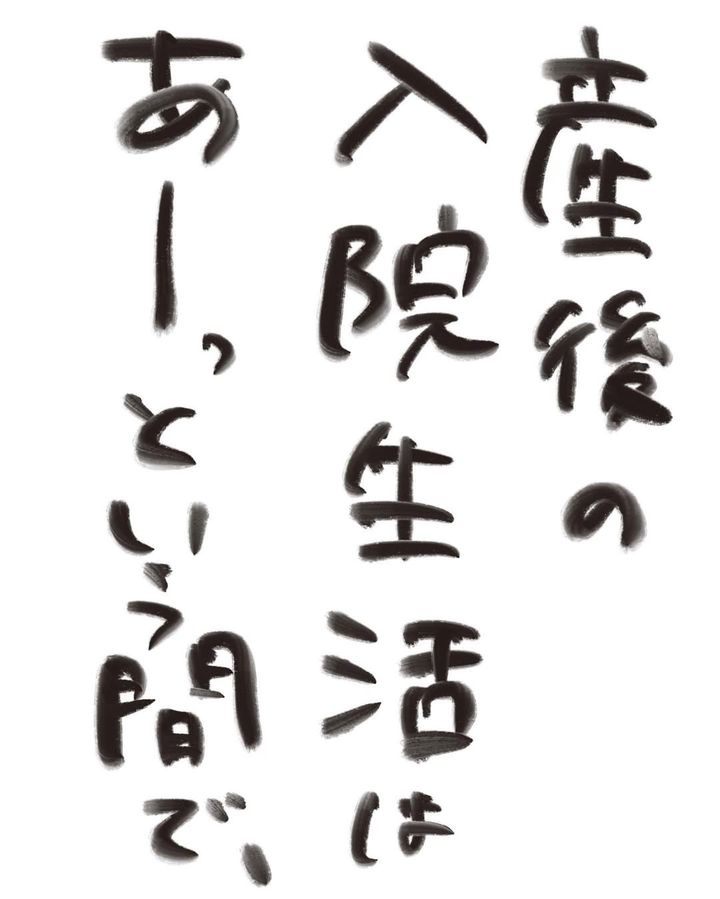 産後の
入院生活は
あーっという間で、